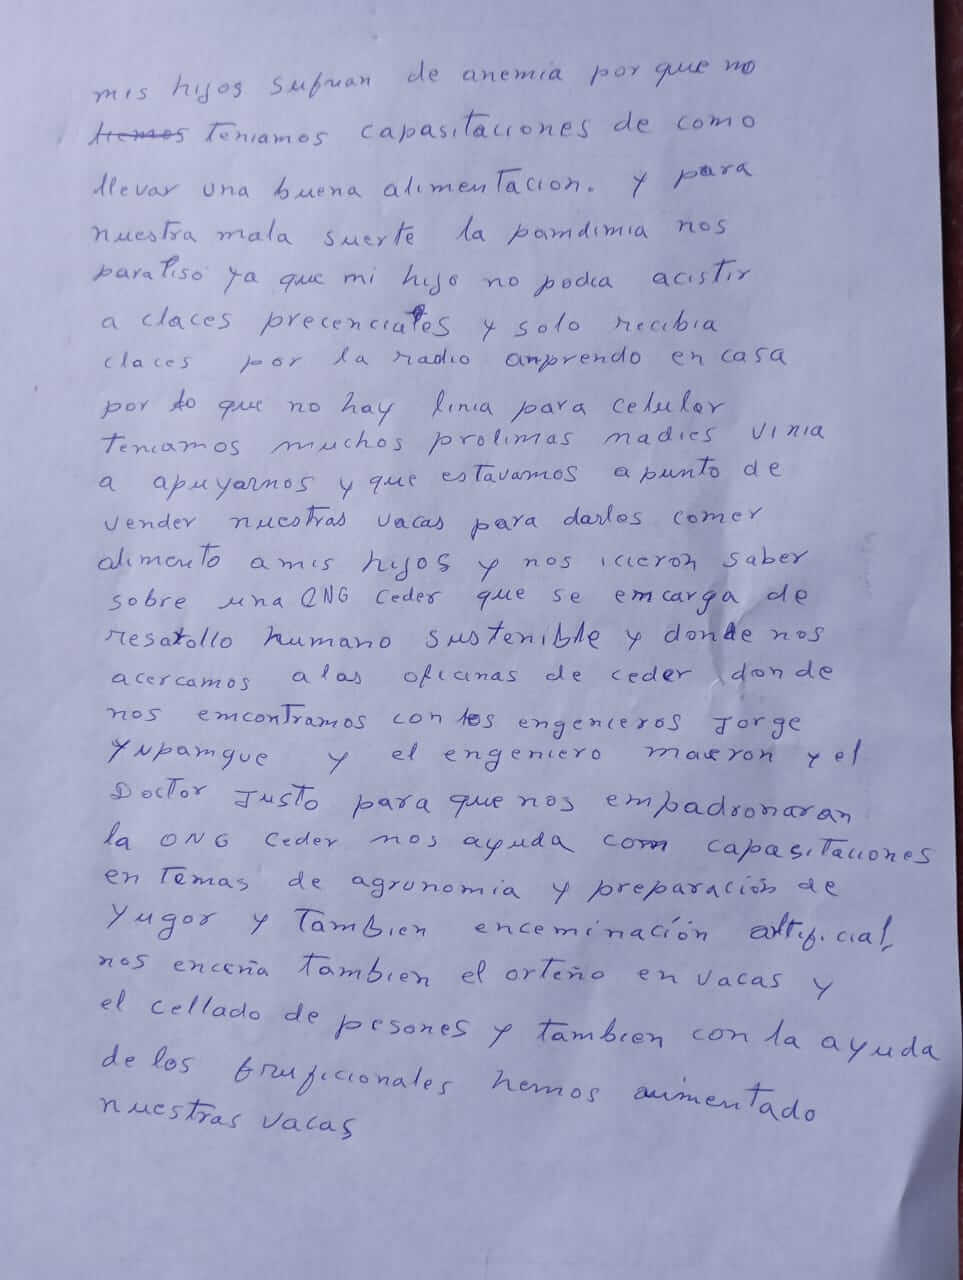 mis hijos sufrian de anemia por que no
hemos teniamos capasitaciones de como
llevar una buena alimentacion. y para
nuestra mala suerte la pamdimia nos
paraliso ya que mi hijo no podia acistir
a claces precenciales y solo recibia
claces por la radio amprendo en casa
por lo que no hay linia para celular
teniamos muchos prolimas nadies vinia
a apuyarnos y que estavamos a punto de
vender nuestras vacas para darlos comer
alimento a mis hijos y nos icieron saber
sobre una ONG Ceder que se emcarga de
resarollo humano sustenible y donde nos
acercamos a las oficinas de ceder donde
nos emcontramos con los engenieros Jorge
Yupamque y el engeniero y el
Doctor Justo para que nos empadronaran
la ONG Ceder nos ayuda com capasitaciones
en temas de agrunomia y preparación de
Yugor y Tambien enceminación artificial,
nos enceña tambien el orteño en vacas y
el cellado de pesones y tambien con la ayuda
de los hemos aumentado
nuestras vacas